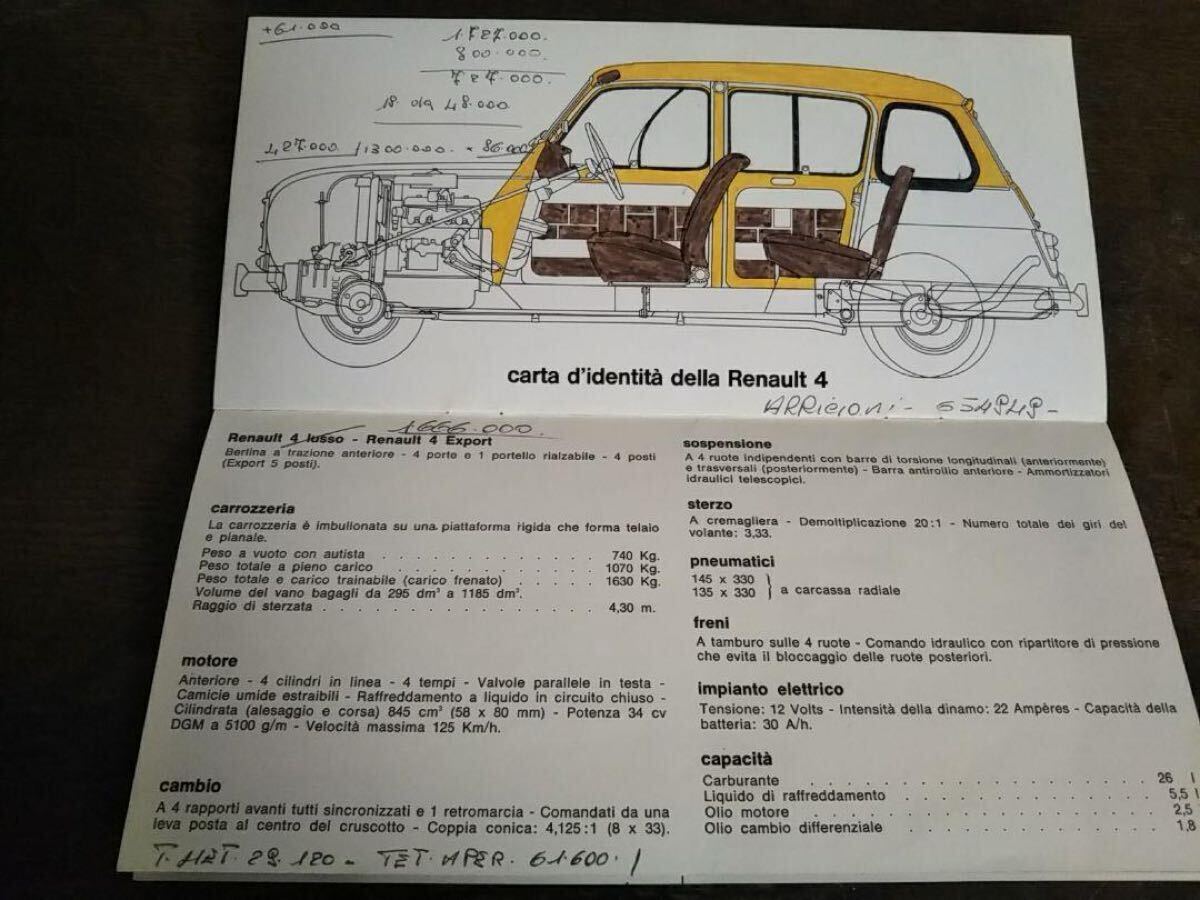 +61.000
1.727.000.
800.000.
727.000.
18 da 48.000
427.000 /1300.000. × 86.000
carta d'identità della Renault 4
ARRICIONI -
1666.000.
Renault 4 lusso - Renault 4 Export
Berlina a trazione anteriore - 4 porte e 1 portello rialzabile - 4 posti
(Export 5 posti).
carrozzeria
La carrozzeria è imbullonata su una piattaforma rigida che forma telaio
e pianale.
Peso a vuoto con autista . . . . . . . . . . . . . 740 Kg.
Peso totale a pieno carico . . . . . . . . . . . . 1070 Kg.
Peso totale e carico trainabile (carico frenato) . . . . . 1630 Kg.
Volume del vano bagagli da 295 dm³ a 1185 dm³.
Raggio di sterzata . . . . . . . . . . . . . . . 4,30 m.
motore
Anteriore - 4 cilindri in linea - 4 tempi - Valvole parallele in testa -
Camicie umide estraibili - Raffreddamento a liquido in circuito chiuso -
Cilindrata (alesaggio e corsa) 845 cm³ (58 x 80 mm) - Potenza 34 cv
DGM a 5100 g/m - Velocità massima 125 Km/h.
cambio
A 4 rapporti avanti tutti sincronizzati e 1 retromarcia - Comandati da una
leva posta al centro del cruscotto - Coppia conica: 4,125:1 (8 x 33).
T. MET. 29.120 - TET. APER. 61.600.
sospensione
A 4 ruote indipendenti con barre di torsione longitudinali (anteriormente)
e trasversali (posteriormente) - Barra antirollio anteriore - Ammortizzatori
idraulici telescopici.
sterzo
A cremagliera - Demoltiplicazione 20:1 - Numero totale dei giri del
volante: 3,33.
pneumatici
145 x 330
135 x 330 } a carcassa radiale
freni
A tamburo sulle 4 ruote - Comando idraulico con ripartitore di pressione
che evita il bloccaggio delle ruote posteriori.
impianto elettrico
Tensione: 12 Volts - Intensità della dinamo: 22 Ampères - Capacità della
batteria: 30 A/h.
capacità
Carburante . . . . . . . . . . . . . . . . . . 26 l
Liquido di raffreddamento . . . . . . . . . . . . . 5,5 l
Olio motore . . . . . . . . . . . . . . . . . . 2,5
Olio cambio differenziale . . . . . . . . . . . . . 1,8